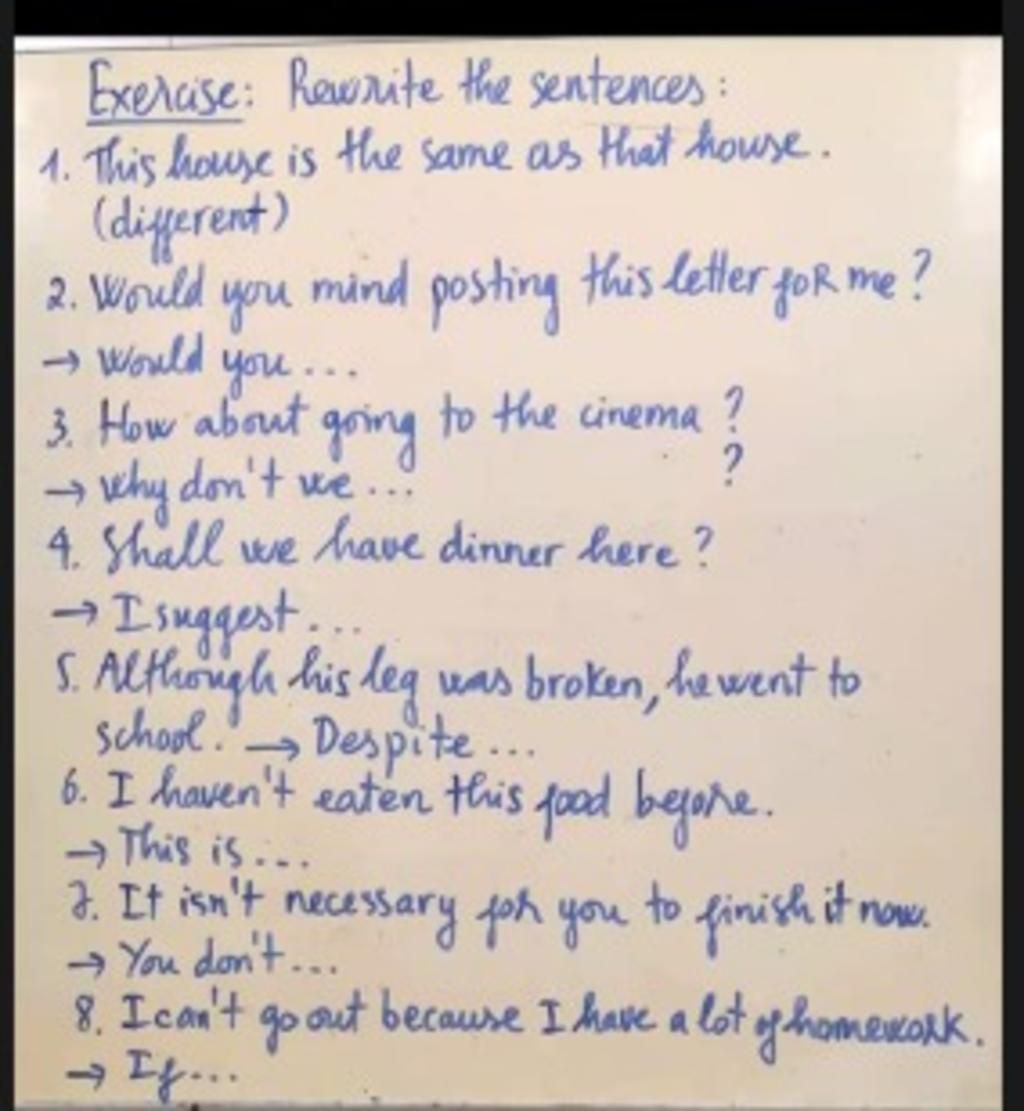 Exercise: Rewrite the sentences:
1. This house is the same as that house.
(different)
2. Would you mind posting this letter for me?
→ Would you...
3. How about going to the cinema?
→ Why don't we... ?
4. Shall we have dinner here?
→ I suggest...
5. Although his leg was broken, he went to
school. → Despite...
6. I haven't eaten this food before.
→ This is...
7. It isn't necessary for you to finish it now.
→ You don't...
8. I can't go out because I have a lot of homework.
→ If...